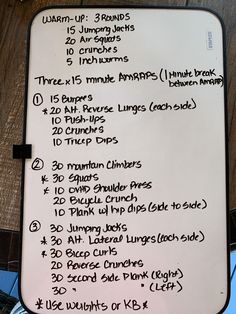 WARM-UP: 3 ROUNDS
15 Jumping Jacks
20 Air Squats
10 crunches
5 Inchworms
Three x 15 minute AMRAPS (1 Minute break
between AMRAP)
① 15 Burpees
* 20 Alt. Reverse Lunges (each side)
10 Push-Ups
20 Crunches
10 Tricep Dips
② 30 mountain Climbers
* 30 Squats
* 10 OVHD Shoulder Press
20 Bicycle Crunch
10 Plank w/ hip dips (side to side)
③ 30 Jumping Jacks
* 30 Alt. Lateral Lunges (each side)
* 30 Bicep Curls
20 Reverse Crunches
30 second side Plank (Right)
30 " " (Left)
* Use weights or KB *